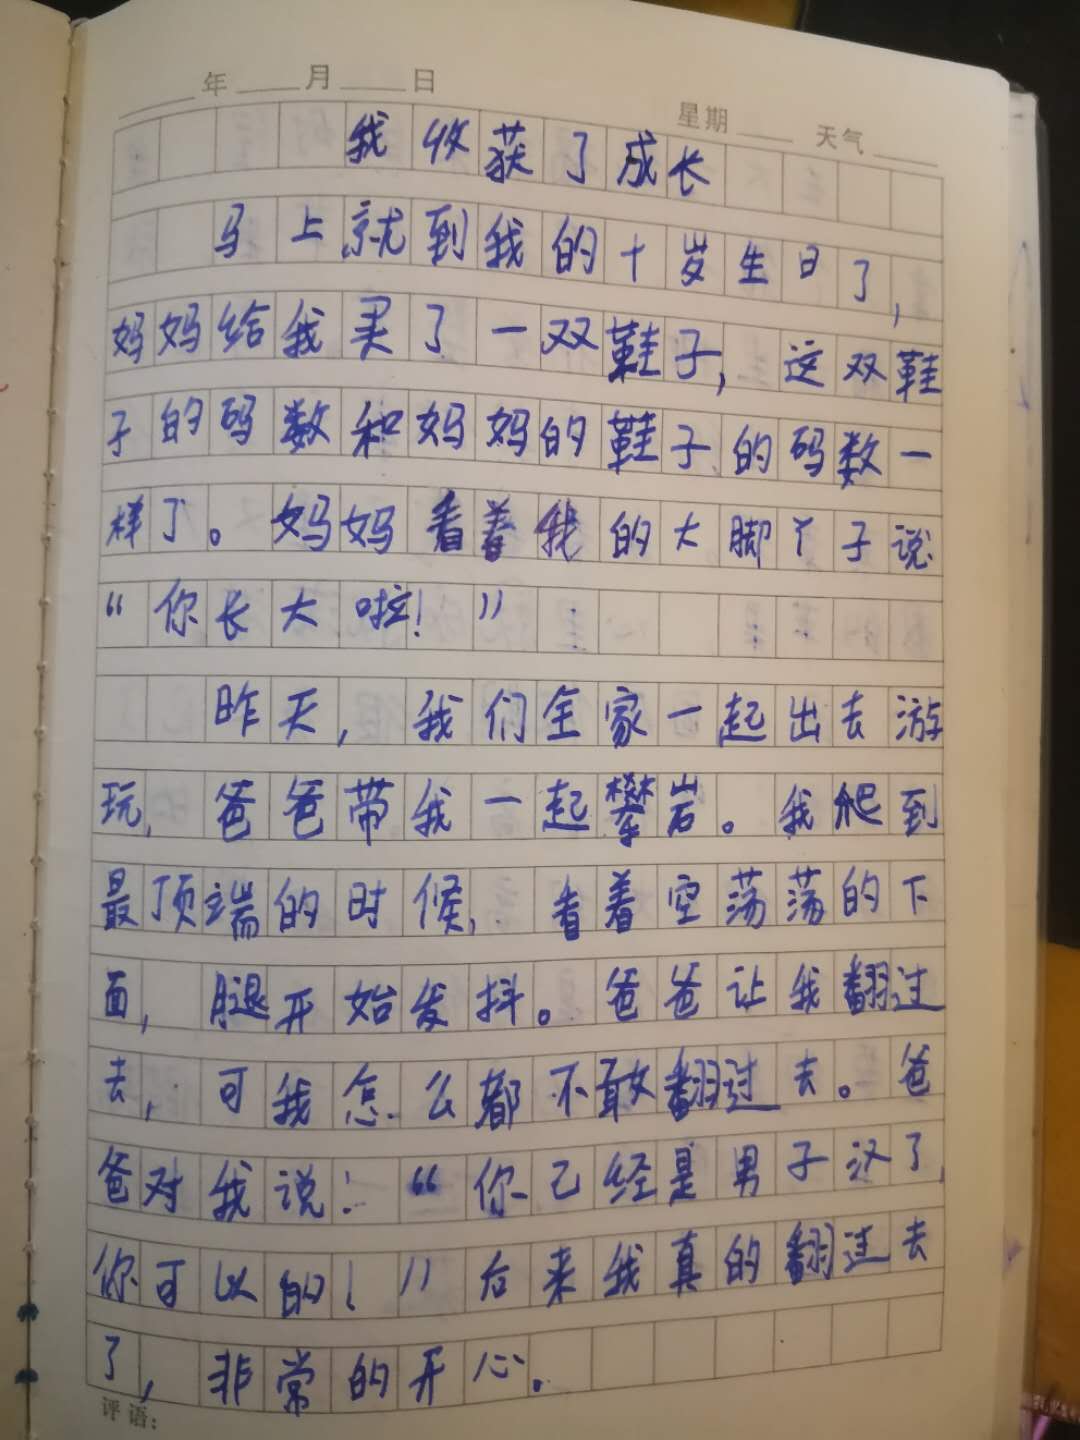 年 月 日
星期 天气
我收获了成长
马上就到我的十岁生日了,
妈妈给我买了一双鞋子,这双鞋
子的码数和妈妈的鞋子的码数一
样了。妈妈看着我的大脚丫子说:
“你长大啦!”
昨天,我们全家一起出去游
玩,爸爸带我一起攀岩。我爬到
最顶端的时候,看着空荡荡的下
面,腿开始发抖。爸爸让我翻过
去,可我怎么都不敢翻过去。爸
爸对我说:“你已经是男子汉了,
你可以的!”后来我真的翻过去
了,非常的开心。
评语: